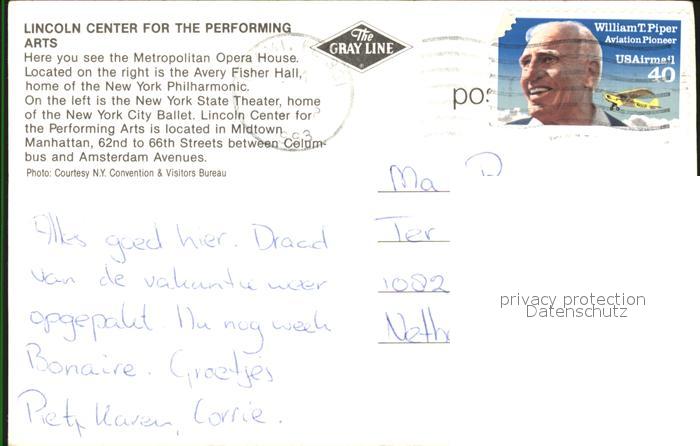 LINCOLN CENTER FOR THE PERFORMING
ARTS
Here you see the Metropolitan Opera House.
Located on the right is the Avery Fisher Hall,
home of the New York Philharmonic.
On the left is the New York State Theater, home
of the New York City Ballet. Lincoln Center for
the Performing Arts is located in Midtown
Manhattan, 62nd to 66th Streets between Colum-
bus and Amsterdam Avenues.
Photo: Courtesy N.Y. Convention & Visitors Bureau
The
GRAY LINE
William T. Piper
Aviation Pioneer
USAirmail
40
pos
Alles goed hier. Draad
van de vakantie weer
opgepakt. Nu nog week
Bonaire. Groetjes
Piet, Karen, Corrie.
Ma
Ter
1082
Neth
privacy protection
Datenschutz